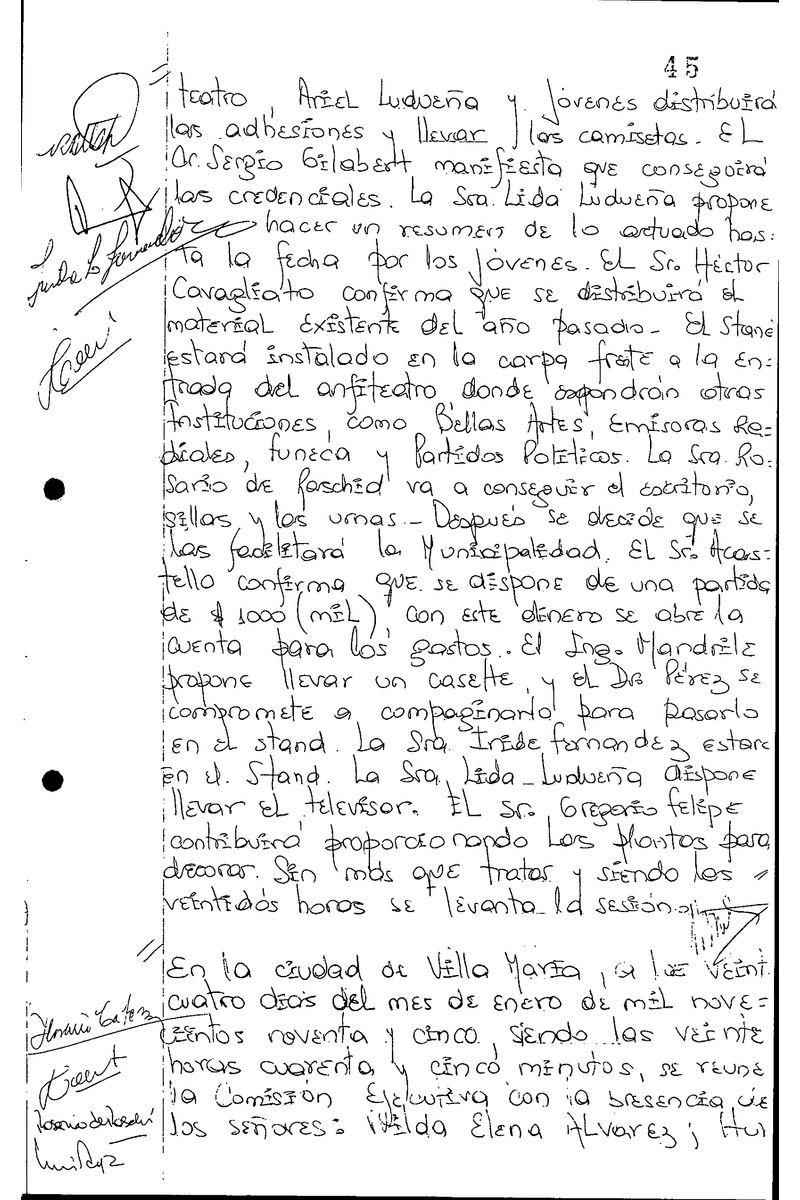 45
teatro, Ariel Ludueña y jóvenes distribuirá
las adhesiones y llevar las camisetas. El
Dr. Sergio Gilabert manifiesta que conseguirá
las credenciales. La Sra. Lida Ludueña propone
hacer un resumen de lo actuado has=
ta la fecha por los jóvenes. El Sr. Héctor
Cavagliato confirma que se distribuirá el
material existente del año pasado - El Stand
estará instalado en la carpa frente a la en=
trada del anfiteatro donde expondrán otras
Instituciones, como Bellas Artes, Emisoras Ra=
diales, Funeca y Partidos Políticos. La Sra. Ro=
sario de Raschid va a conseguir el escritorio,
sillas y las urnas - Después se decide que se
las facilitará la Municipalidad. El Sr. Acas=
tello confirma que se dispone de una partida
de $ 1000 (mil) con este dinero se abre la
cuenta para los gastos. El Ing. Mandrile
propone llevar un casette, y el Dr. Pérez se
compromete a compaginarla para pasarlo
en el stand. La Sra. Iride Fernandez estará
en el Stand. La Sra. Lida Ludueña dispone
llevar el televisor. El Sr. Gregorio Felipe
contribuirá proporcionando las plantas para
decorar. Sin más que tratar y siendo las =
veintidós horas se levanta la sesión.
En la ciudad de Villa María, a los veinti
cuatro días del mes de enero de mil nove=
cientos noventa y cinco, siendo las veinte
horas cuarenta y cinco minutos, se reune
la Comisión Ejecutiva con la presencia de
Rosario de Raschid
los señores: Nilda Elena Alvarez; Hui